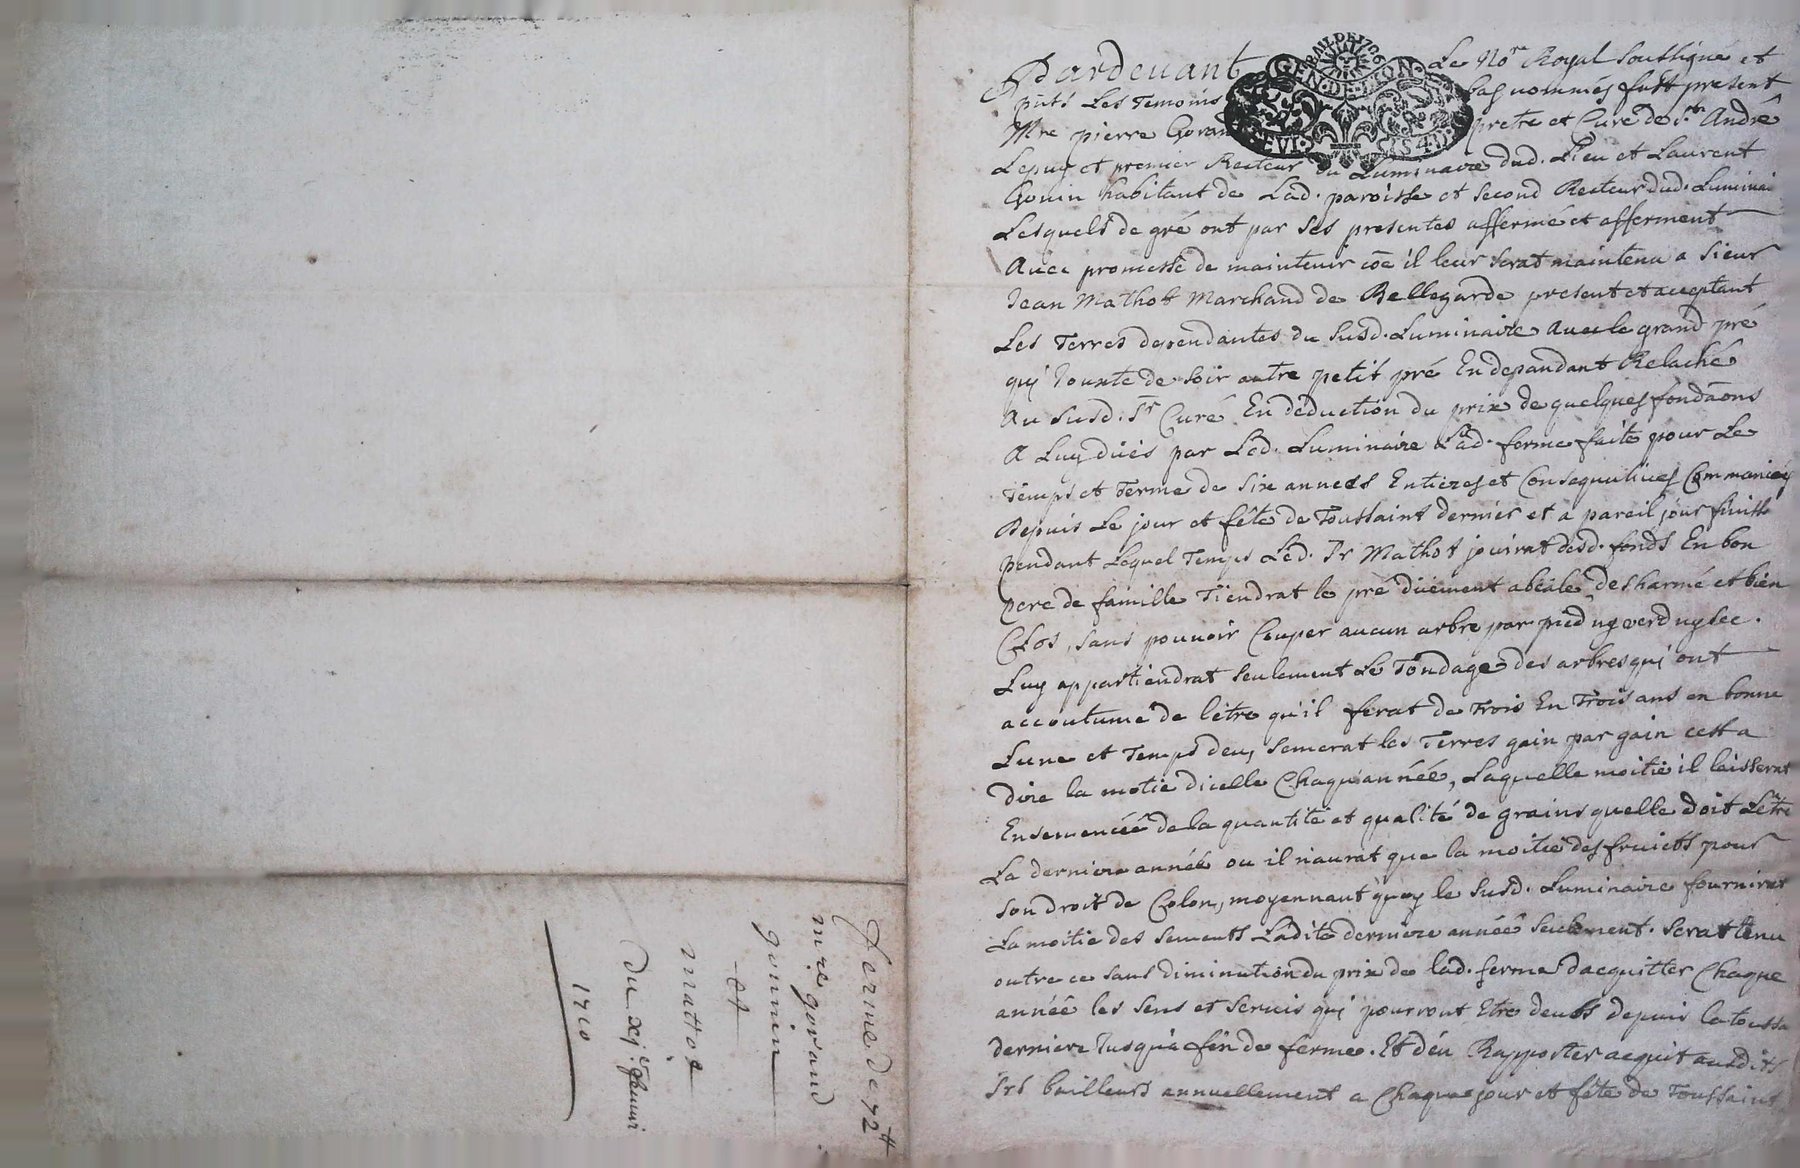 Pardevant Le No.re Royal Soussigné et
pnts Les Temoins bas nommés fust present
Mre pierre Goran pretre et Curé de St André
Lepuy et premier Recteur du Luminaire dud. Lieu et Laurent
Gonin habitant de Lad. paroisse et second Recteur dud. Luminai
Lesquels de gré ont par ses presentes affermé et afferment
Avec promesse de maintenir cõe il leur serat maintenu a Sieur
Jean Mathot Marchand de Bellegarde present et acceptant
Les Terres dependantes du susd. Luminaire Avec le grand pré
qui Jouxte de soir autre petit pré En dependant Relaché
Au susd. Sr Curé En deduction du prix de quelques fondaõns
A Luy duës par Led. Luminaire Lad. ferme faite pour Le
Temps et Terme de Six années Entieres et Consequtives Commancés
Depuis Le jour et fête de Toussaint dernier et a pareil jour finiss
pendant Lequel Temps Led. Sr Mathot jouirat desd. fonds En bon
pere de famille Tiendrat le pré düement abéalé, desharmé et bien
Clos, sans pouvoir Couper aucun arbre par pied ny verd ny sec.
Luy appartiendrat seulement Le Tondage des arbres qui ont
accoutumé de lêtre qu'il ferat de Trois En Trois ans en bonne
Lune et Temps deu, Semerat les Terres gain par gain cest a
dire la motié dicelle Chaqu'année, Laquelle moitié il laisserat
Ensemencée de la quantité et qualité de grains quelle doit Letre
La derniere année ou il n'aurat que la moitié des fruicts pour
son droit de Colon, moyennant quoy le susd. Luminaire fournirat
La moitie des sements Ladite derniere année seulement. Serat tenu
outre ce sans diminution du prix de lad. ferme d'acquitter Chaque
année les sens et servis qui pourront Etre deubs depuis la toussa
derniere Jusqu'a fin de ferme. Et d'en Rapporter acquit ausdits
Srs bailleurs annuellement a Chaque jour et fête de Toussaint
BAIL DE 1706
GEN·DE·LYON
S 4 D
ferme de 72tt
mre gorand
gonnin
et
mattot
Du xj.e fevrier
1710